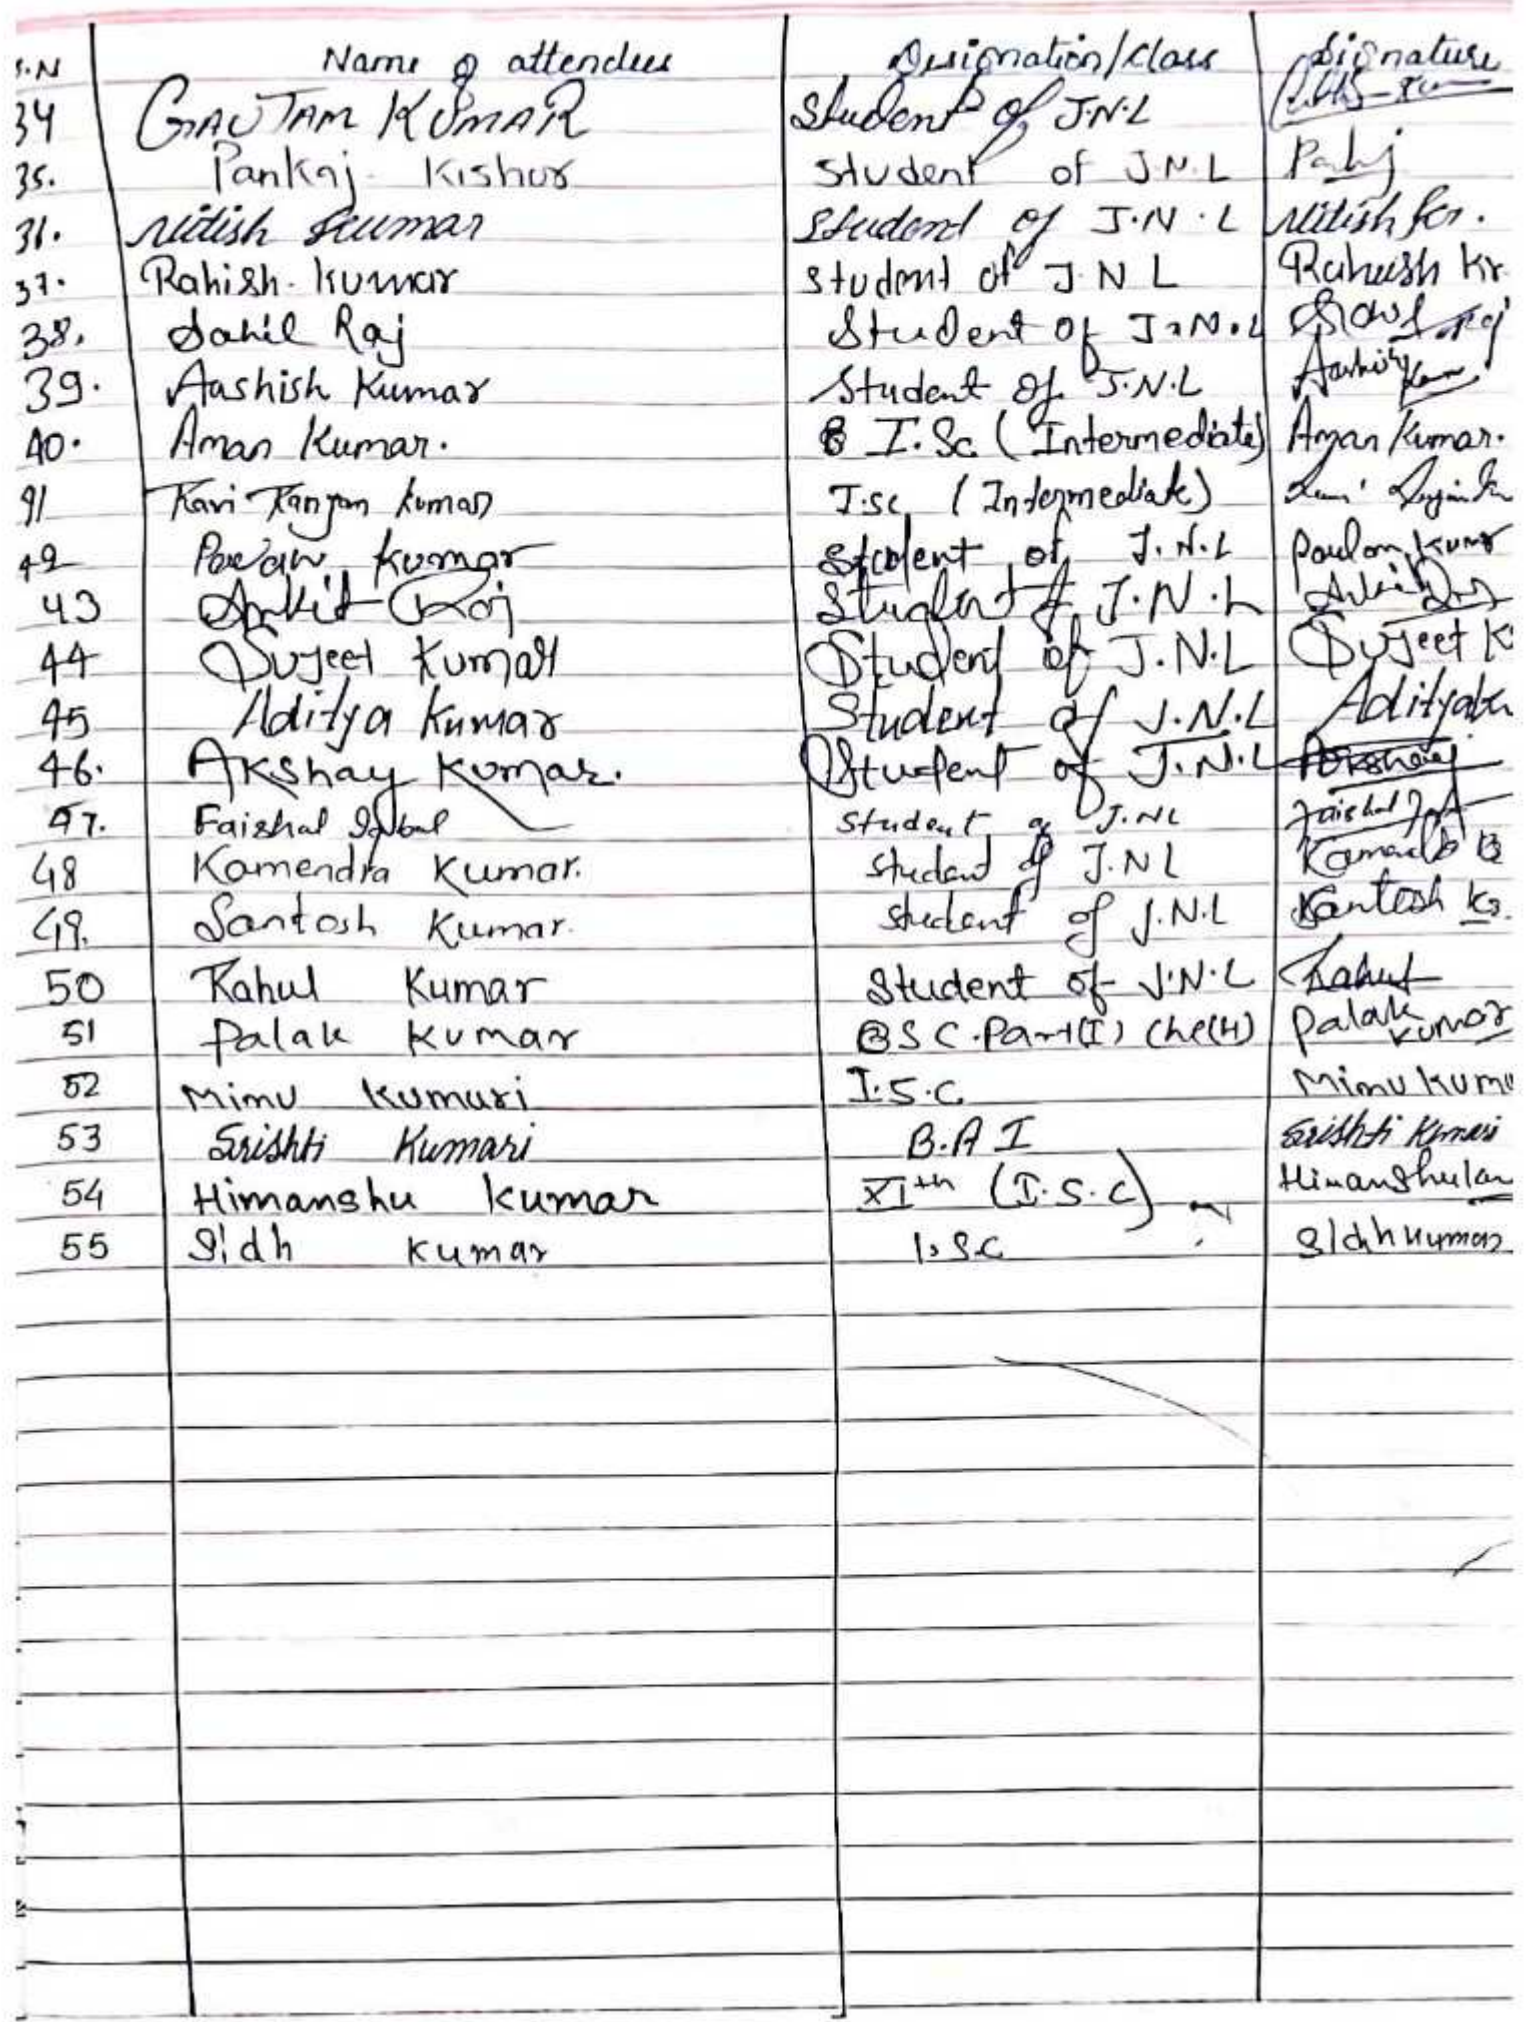 S.N Name of attendees Designation/Class Signature
34 GAUTAM KUMAR Student of J.N.L
35. Pankaj Kishor Student of J.N.L
31. Nitish Kumar Student of J.N.L Nitish Kr.
37. Rahish Kumar Student of J.N L Rahish Kr
38. Sahil Raj Student of J.N.L
39. Aashish Kumar Student of J.N.L Aashish Kum
40. Aman Kumar. I.Sc (Intermediate) Aman Kumar.
41 Ravi Ranjan Kumar I.Sc (Intermediate)
42 Kumar Student of J.N.L Kumr
43 Ankit Raj Student of J.N.L Ankit Raj
44 Sujeet Kumar Student of J.N.L Sujeet K
45 Aditya Kumar Student of J.N.L Aditya
46. Akshay Kumar. Student of J.N.L Akshay
47. Faishal Iqbal Student of J.NL Faishal
48 Kamendra Kumar. Student of J.NL
49. Santosh Kumar. Student of J.N.L Santosh Kr.
50 Rahul Kumar Student of J.N.L Rahul
51 Palak Kumar BSC.Part(I) Che(H) Palak Kumar
52 Minu Kumari I.S.C Minu Kum
53 Srishti Kumari B.A I Srishti Kumari
54 Himanshu Kumar XIth (I.S.C) Himanshu
55 Sidh Kumar I.SC Sidh Kumar